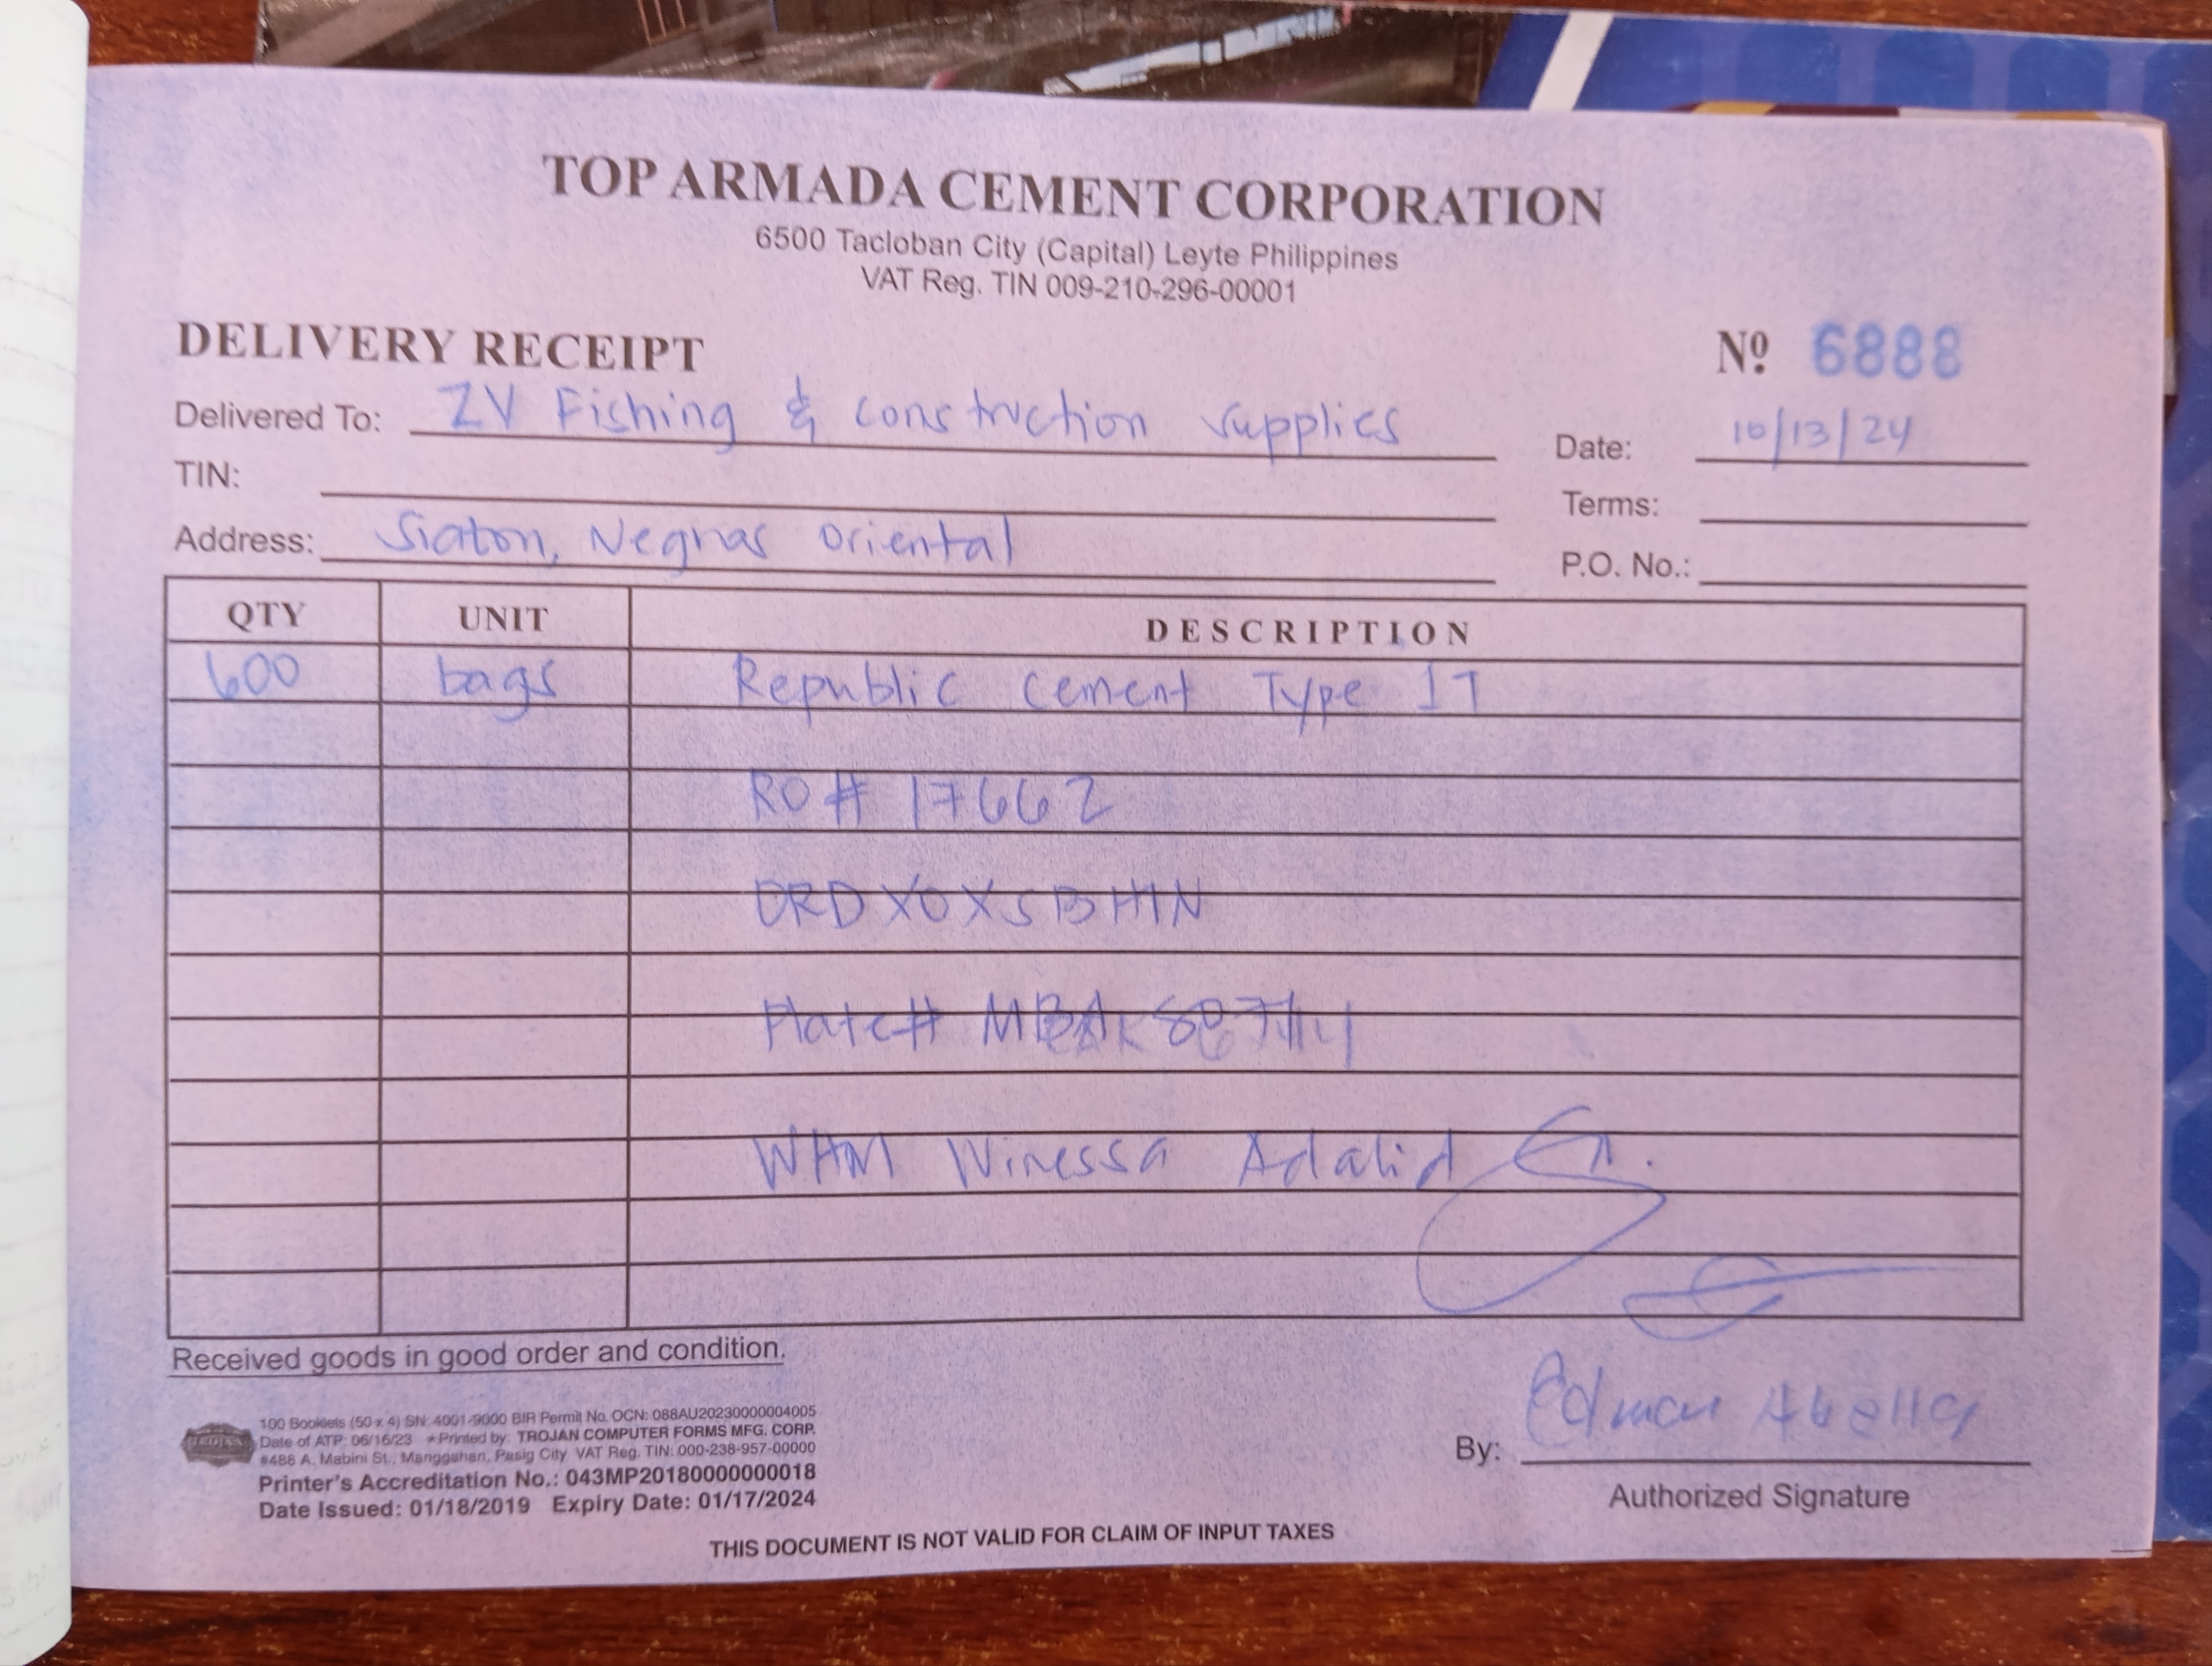 TOP ARMADA CEMENT CORPORATION
6500 Tacloban City (Capital) Leyte Philippines
VAT Reg. TIN 009-210-296-00001
DELIVERY RECEIPT Nº 6888
Delivered To: ZV Fishing & construction supplies Date: 10/13/24
TIN: Terms:
Address: Siaton, Negros Oriental P.O. No.:
QTY UNIT DESCRIPTION
600 bags Republic Cement Type 1T
RO# 17662
ORDXOXSBH1N
Plate#
WHM Winessa Adalid
Received goods in good order and condition.
Edmar Abella
By:
Authorized Signature
100 Booklets (50 x 4) SN: 4001-9000 BIR Permit No. OCN: 088AU20230000004005
Date of ATP: 06/16/23 *Printed by: TROJAN COMPUTER FORMS MFG. CORP.
#486 A. Mabini St., Manggahan, Pasig City VAT Reg. TIN: 000-238-957-00000
Printer's Accreditation No.: 043MP20180000000018
Date Issued: 01/18/2019 Expiry Date: 01/17/2024
THIS DOCUMENT IS NOT VALID FOR CLAIM OF INPUT TAXES